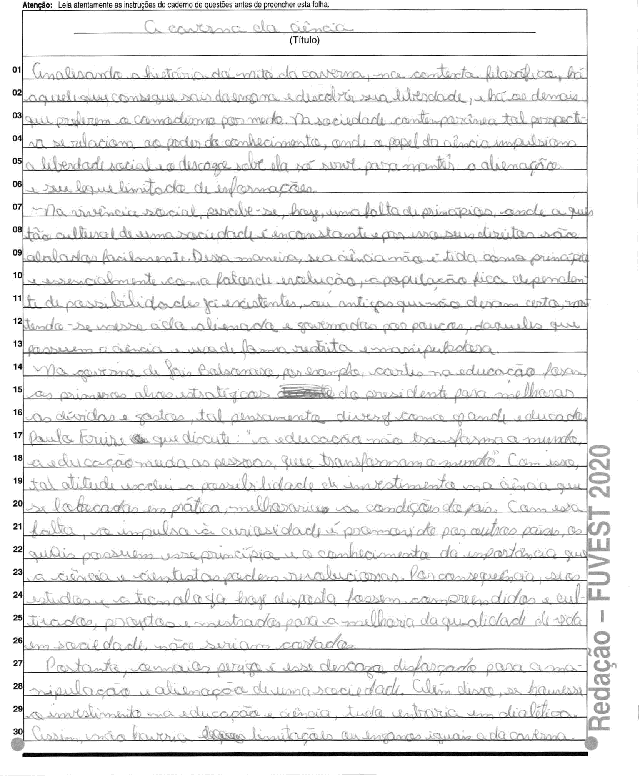 Atenção: Leia atentamente as instruções do caderno de questões antes de preencher esta folha.
A caverna da ciência
(Título)
01 Analisando a história do mito da caverna, no contexto filosófico, há
02 aquele que consegue sair da caverna e descobrir sua liberdade, e há os demais
03 que preferem o comodismo por medo. Na sociedade contemporânea tal perspecti-
04 va se relaciona ao poder do conhecimento, onde o papel da ciência impulsiona
05 a liberdade social e o descaso sobre ela só serve para manter a alienação
06 e seu leque limitado de informações.
07 Na vivência social, percebe-se, hoje, uma falta de princípios, onde a ques
08 tão cultural de uma sociedade é inconstante e por isso seus direitos são
09 abalados facilmente. Dessa maneira, se a ciência não é tida como princípio
10 e essencialmente como fator de evolução, a população fica dependen-
11 te de possibilidades já existentes, ou antigas que não deram certo, man
12 tendo-se nesse alienada e governada por poucos, daqueles que
13 possuem a ciência e usa de forma restrita e manipuladora.
14 No governo de Jair Bolsonaro, por exemplo, cortes na educação foram
15 os primeiros alvos estratégicos do presidente para melhorar
16 as dívidas e gastos, tal pensamento diverge com o grande educador
17 Paulo Freire que discute: "a educação não transforma o mundo,
18 a educação muda as pessoas, que transformam o mundo". Com isso,
19 tal atitude exclui a possibilidade de investimento na ciência que
20 se colocadas em prática, melhoraria as condições do país. Com essa
21 falta, o impulso à curiosidade é promovido por outros países, os
22 quais possuem esse princípio e o conhecimento da importância que
23 a ciência e cientistas podem revolucionar. Por consequência, se os
24 estudos e a tecnologia hoje disposta fossem compreendidos e cul
25 tivados, projetos e mestrados para a melhoria da qualidade de vida
26 em sociedade, não seriam cortados.
27 Portanto, o maior perigo é esse descaso disfarçado para a ma-
28 nipulação e alienação de uma sociedade. Além disso, se houvesse
29 o investimento na educação e ciência, tudo entraria em dialética.
30 Assim, não haveria limitações ou enganos iguais a da caverna.
Redação – FUVEST 2020